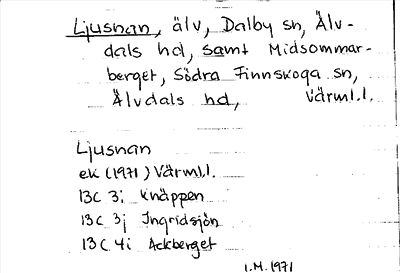 Ljusnan, älv, Dalby sn, Älv-
dals hd, samt Midsommar-
berget, Södra Finnskoga sn,
Älvdals hd, Värml.l.
Ljusnan
ek (1971) Värml.l.
13C 3i Knäppen
13C 3j Ingridsjön
13C 4i Ackberget
I.M. 1971